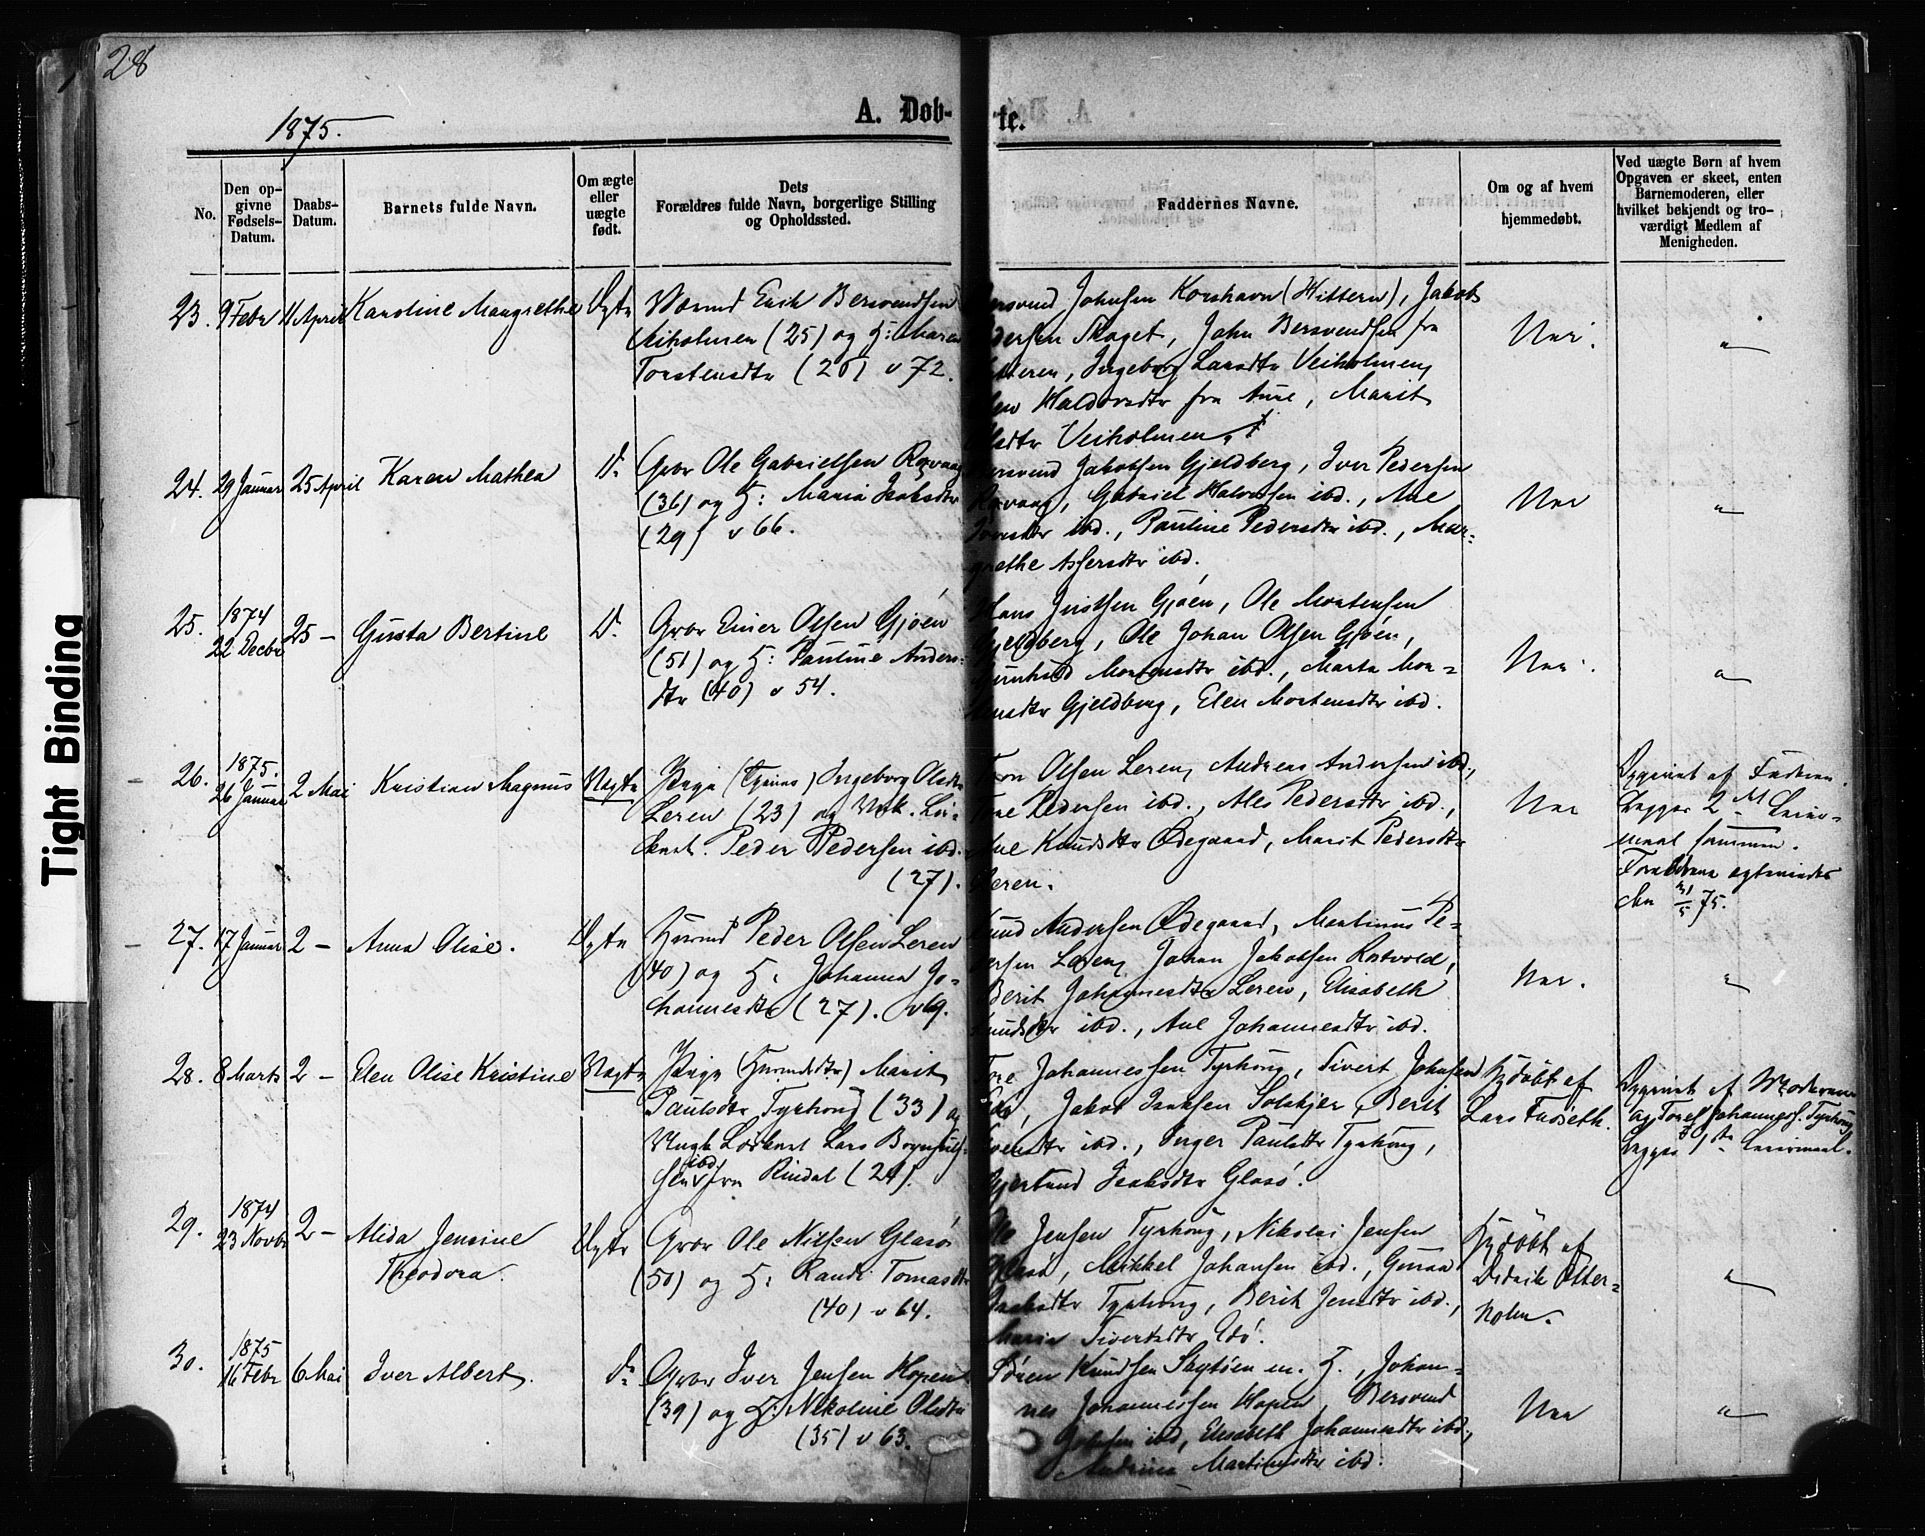 28
1875.
A. Døb-
te.
No.
Den op-
givne
Fødsels-
Datum.
Daabs-
Datum.
Barnets fulde Navn.
Om ægte
eller
uægte
født.
Dets
Forældres fulde Navn, borgerlige Stilling
og Opholdssted.
Faddernes Navne.
Om og af hvem
hjemmedøbt.
Ved uægte Børn af hvem
Opgaven er skeet, enten
Barnemoderen, eller
hvilket bekjendt og tro-
værdigt Medlem af
Menigheden.
23. 9 Febr 11 April Karoline Margrethe Ægte
Erik Bersvendsen
Veiholmen (25) og H: Maren
Torstensdtr (26) v 72.
Johnsen Korshavn (Hitteren), Jakob
Skaget, John Bersvendsen fra
Ingeborg Larsdtr Veiholmen,
Haldorsdtr fra Aure, Marit
Veiholmen.
Nei.
"
24. 29 Januar 25 April Karen Mathea D:
Gbr Ole Gabrielsen Rovaag
(36) og H: Maria Isaksdtr
(29) v 66.
Jakobsen Gjeldberg, Iver Pedersen
Gabriel Halvorsen ibd., Ane
Iversdtr ibd., Pauline Pedersdtr ibd., Mar-
grethe Assersdtr ibd.
Nei
"
25. 1874
22 Decbr 25 – Gusta Bertine D.
Gbr Einer Olsen Gjøen
(51) og H: Pauline Anders-
dtr (40) v 54.
Hans Gjøen, Ole Mortensen
Gjeldberg, Ole Johan Olsen Gjøen,
Gunhild Mortensdtr ibd., Marta Mor-
tensdtr Gjeldberg, Elen Mortensdtr ibd.
Nei.
"
26. 1875.
26 Januar 2 Mai Kristian Magnus Uægte
Pige Ingeborg Olsdtr
Leren (23) og Unk. Lós-
kart. Peder Pedersen ibd.
(27).
Olsen Leren, Andreas Andersen ibd.,
Tore Pedersen ibd., Ales Pedersdtr ibd.,
Ane Knudsdtr Ødegaard, Marit Pedersdtr
Leren.
Nei
Opgivet af Faderen.
Begges 2det Leier-
maal sammen.
Forældrene
den 31/5 75.
27. 17 Januar 2 – Anna Olise. Ægte
Husmd Peder Olsen Leren
(40) og H: Johanna Jo-
hannesdtr (27). v 69.
Knud Andersen Ødegaard, Martinus Pe-
dersen Leren, Johan Jakobsen Rostvold,
Berit Johannesdtr Leren, Elisabeth
Knudsdtr ibd., Ane Johannesdtr ibd.
Nei.
"
28. 8 Marts 2 – Elen Olise Kristine Uægte
Pige (Husmdsdtr) Marit
Paulsdtr Tyrhoug (33) og
Ungk Løskart Lars
ibd
fra Rindal (24).
Tore Johannessen Tyrhoug, Sivert Johnsen
Edø, Jakob Isaksen Solskjær, Berit
ibd., Inger Paulsdtr Tyrhoug,
Gjertrud Isaksdtr Glasø.
Hjdøbt af
Lars Fudseth.
Opgivet af Moderen
og Tore Johanness. Tyrhoug
Begges 1ste Leiermaal.
29. 1874
23 Novbr 2 – Alida Jensine
Theodora. Ægte
Gbr Ole Nilsen Glasø
(50) og H: Randi Tomasdtr
(40) v 64.
Ole Jensen Tyrhoug, Nikolai Jensen
Glasø, Mikkel Johansen ibd., Guraa
Isaksdtr Tyrhoug, Berit Jensdtr ibd.,
Maria Sivertsdtr Edø.
Hjdøbt af
Didrik Otter-
holm.
"
30. 1875
16 Febr 6 Mai Iver Albert. D:
Gbr Iver Jensen Hopen
(39) og H: Nikoline Olsdtr
(35) v 63.
Søren Knudsen Sagtøen m. H., Johan-
nes Johannessen Hopen, Bersvend
ibd, Elisabeth Johannesdtr ibd.,
Martinusdtr ibd.
Nei
"
Tight Binding